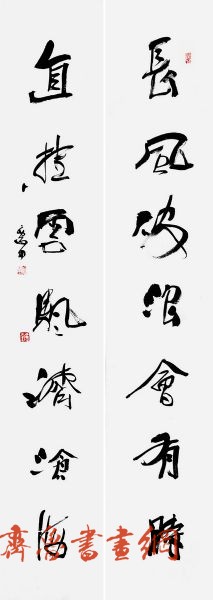 長風破浪會有時
直挂雲颿濟滄海
齊魯書畫網